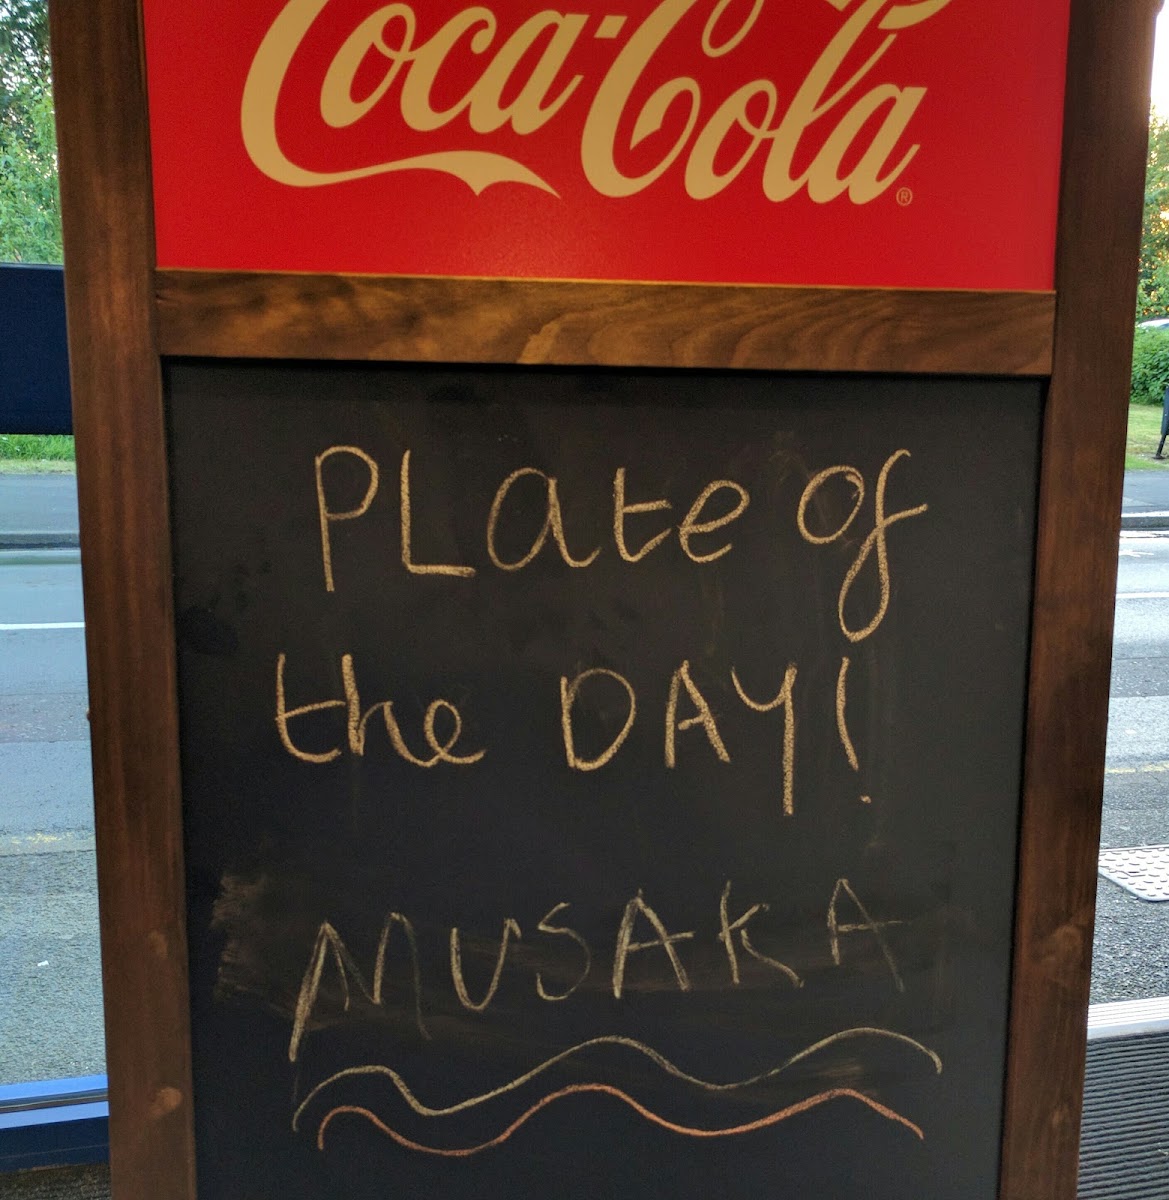 Coca-Cola®
PLate of
the DAY!
MUSAKA